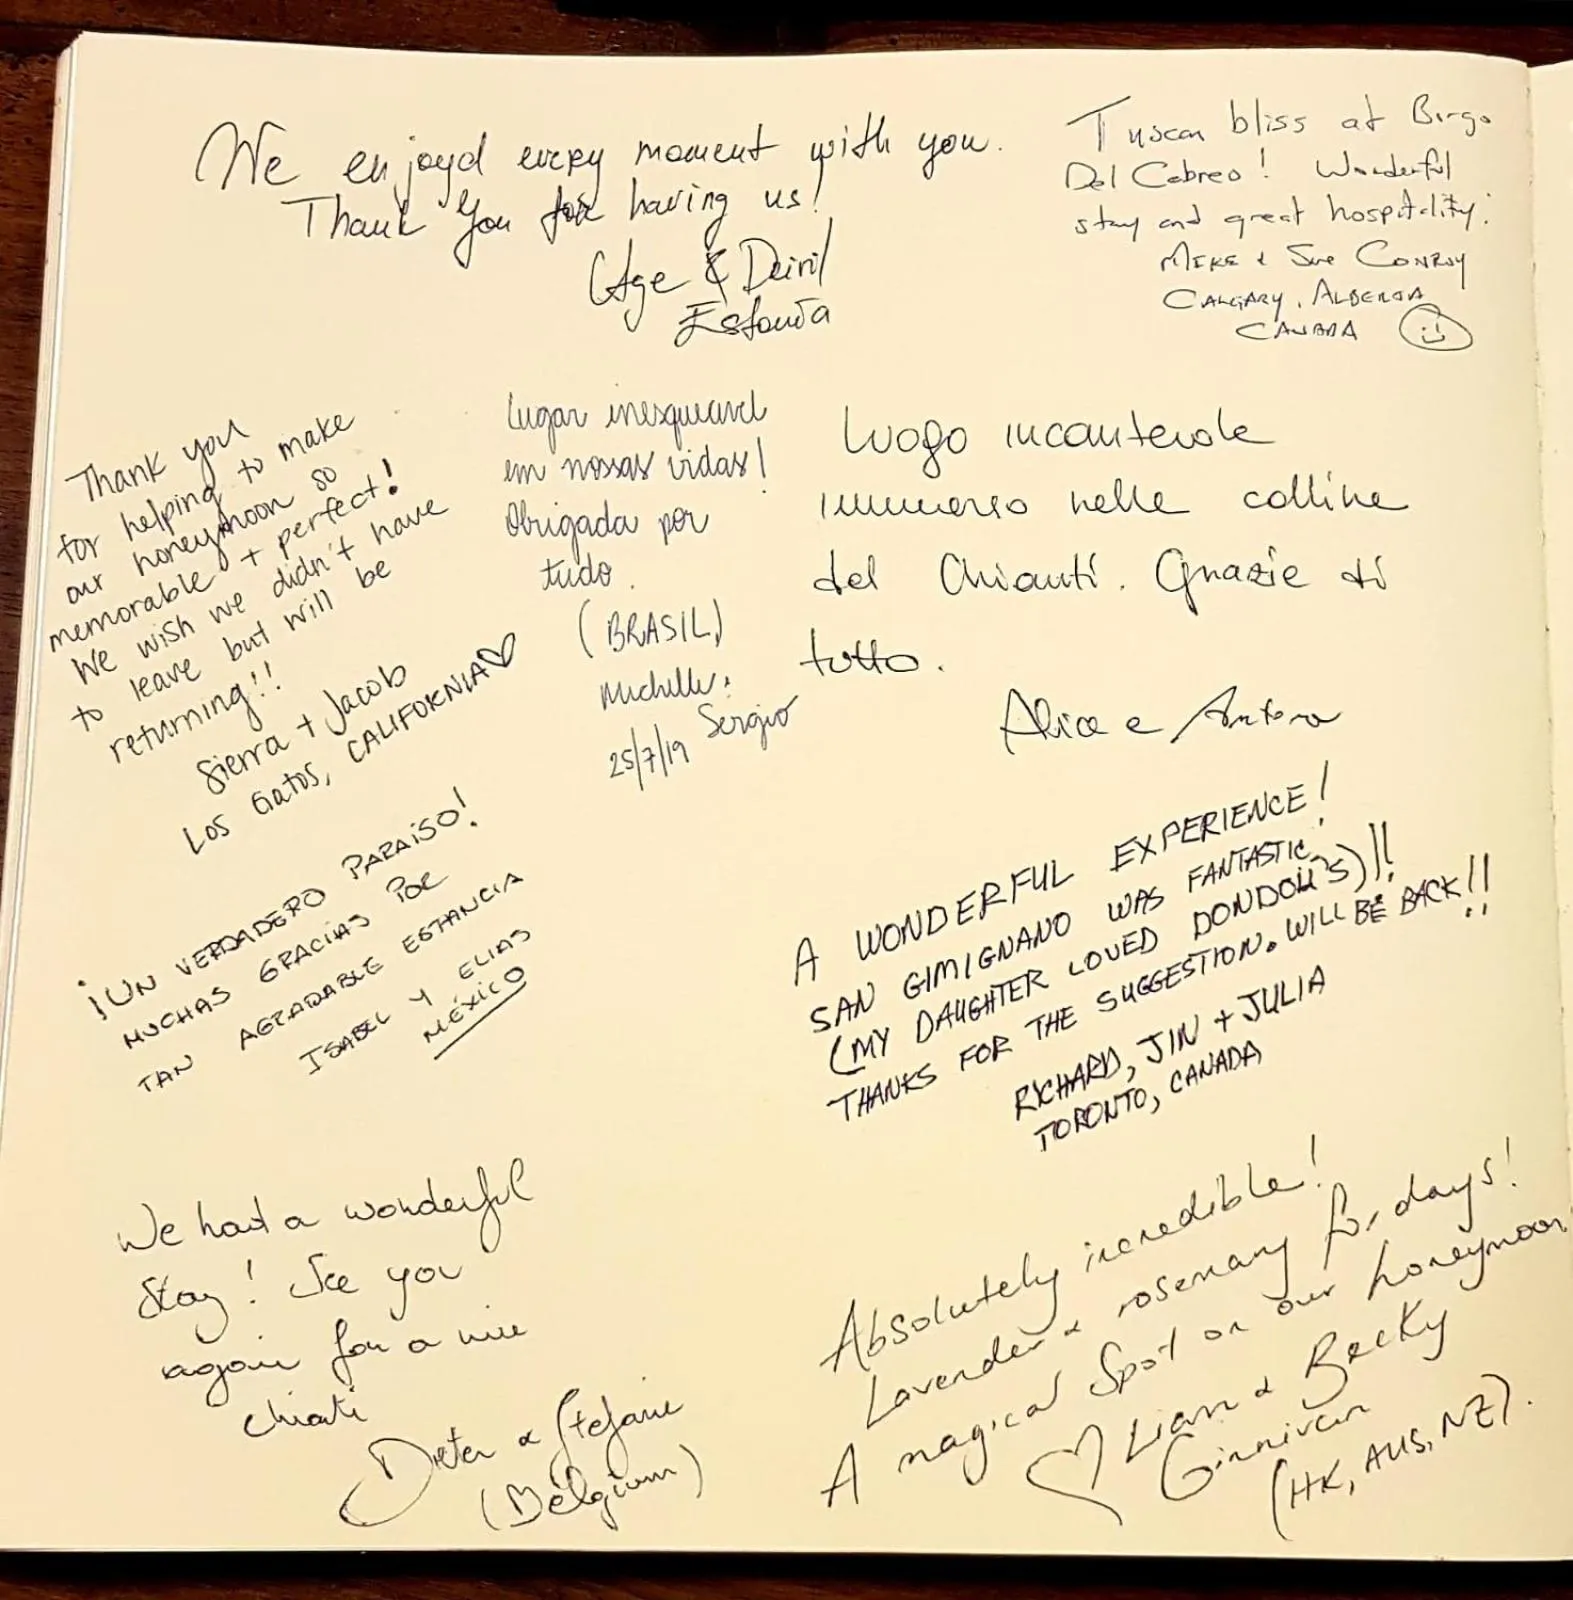 We enjoyd every moment with you.
Thank you for having us!
Age & Deivil
Estonia
Tuscan bliss at Borgo
Del Cabreo! Wonderful
stay and great hospitality.
MIKE & Sue CONROY
CALGARY, ALBERTA
CANADA
Thank you
for helping to make
our honeymoon so
memorable + perfect!
We wish we didn't have
to leave but will be
returning!!
Sierra + Jacob
Los Gatos, CALIFORNIA
Lugar inesquecível
em nossas vidas!
Obrigada por
tudo.
(BRASIL)
Michelle
Sergio
25/7/19
Luogo incantevole
immerso nelle colline
del Chianti. Grazie di
tutto.
Alice e
¡UN VERDADERO PARAíSO!
MUCHAS GRACIAS POR
TAN AGRADABLE ESTANCIA
ISABEL Y ELIAS
MÉXICO
A WONDERFUL EXPERIENCE!
SAN GIMIGNANO WAS FANTASTIC.
(MY DAUGHTER LOVED DONDOLI'S)!!
THANKS FOR THE SUGGESTION. WILL BE BACK!!
RICHARD, JIN + JULIA
TORONTO, CANADA
We had a wonderful
Stay! See you
again for a nice
chianti
Dieter & Stefanie
(Belgium)
Absolutely incredible!
Lavender & rosemary for days!
A magical spot on our honeymoon
Liam & Becky
Ginnivan
(HK, AUS, NZ).